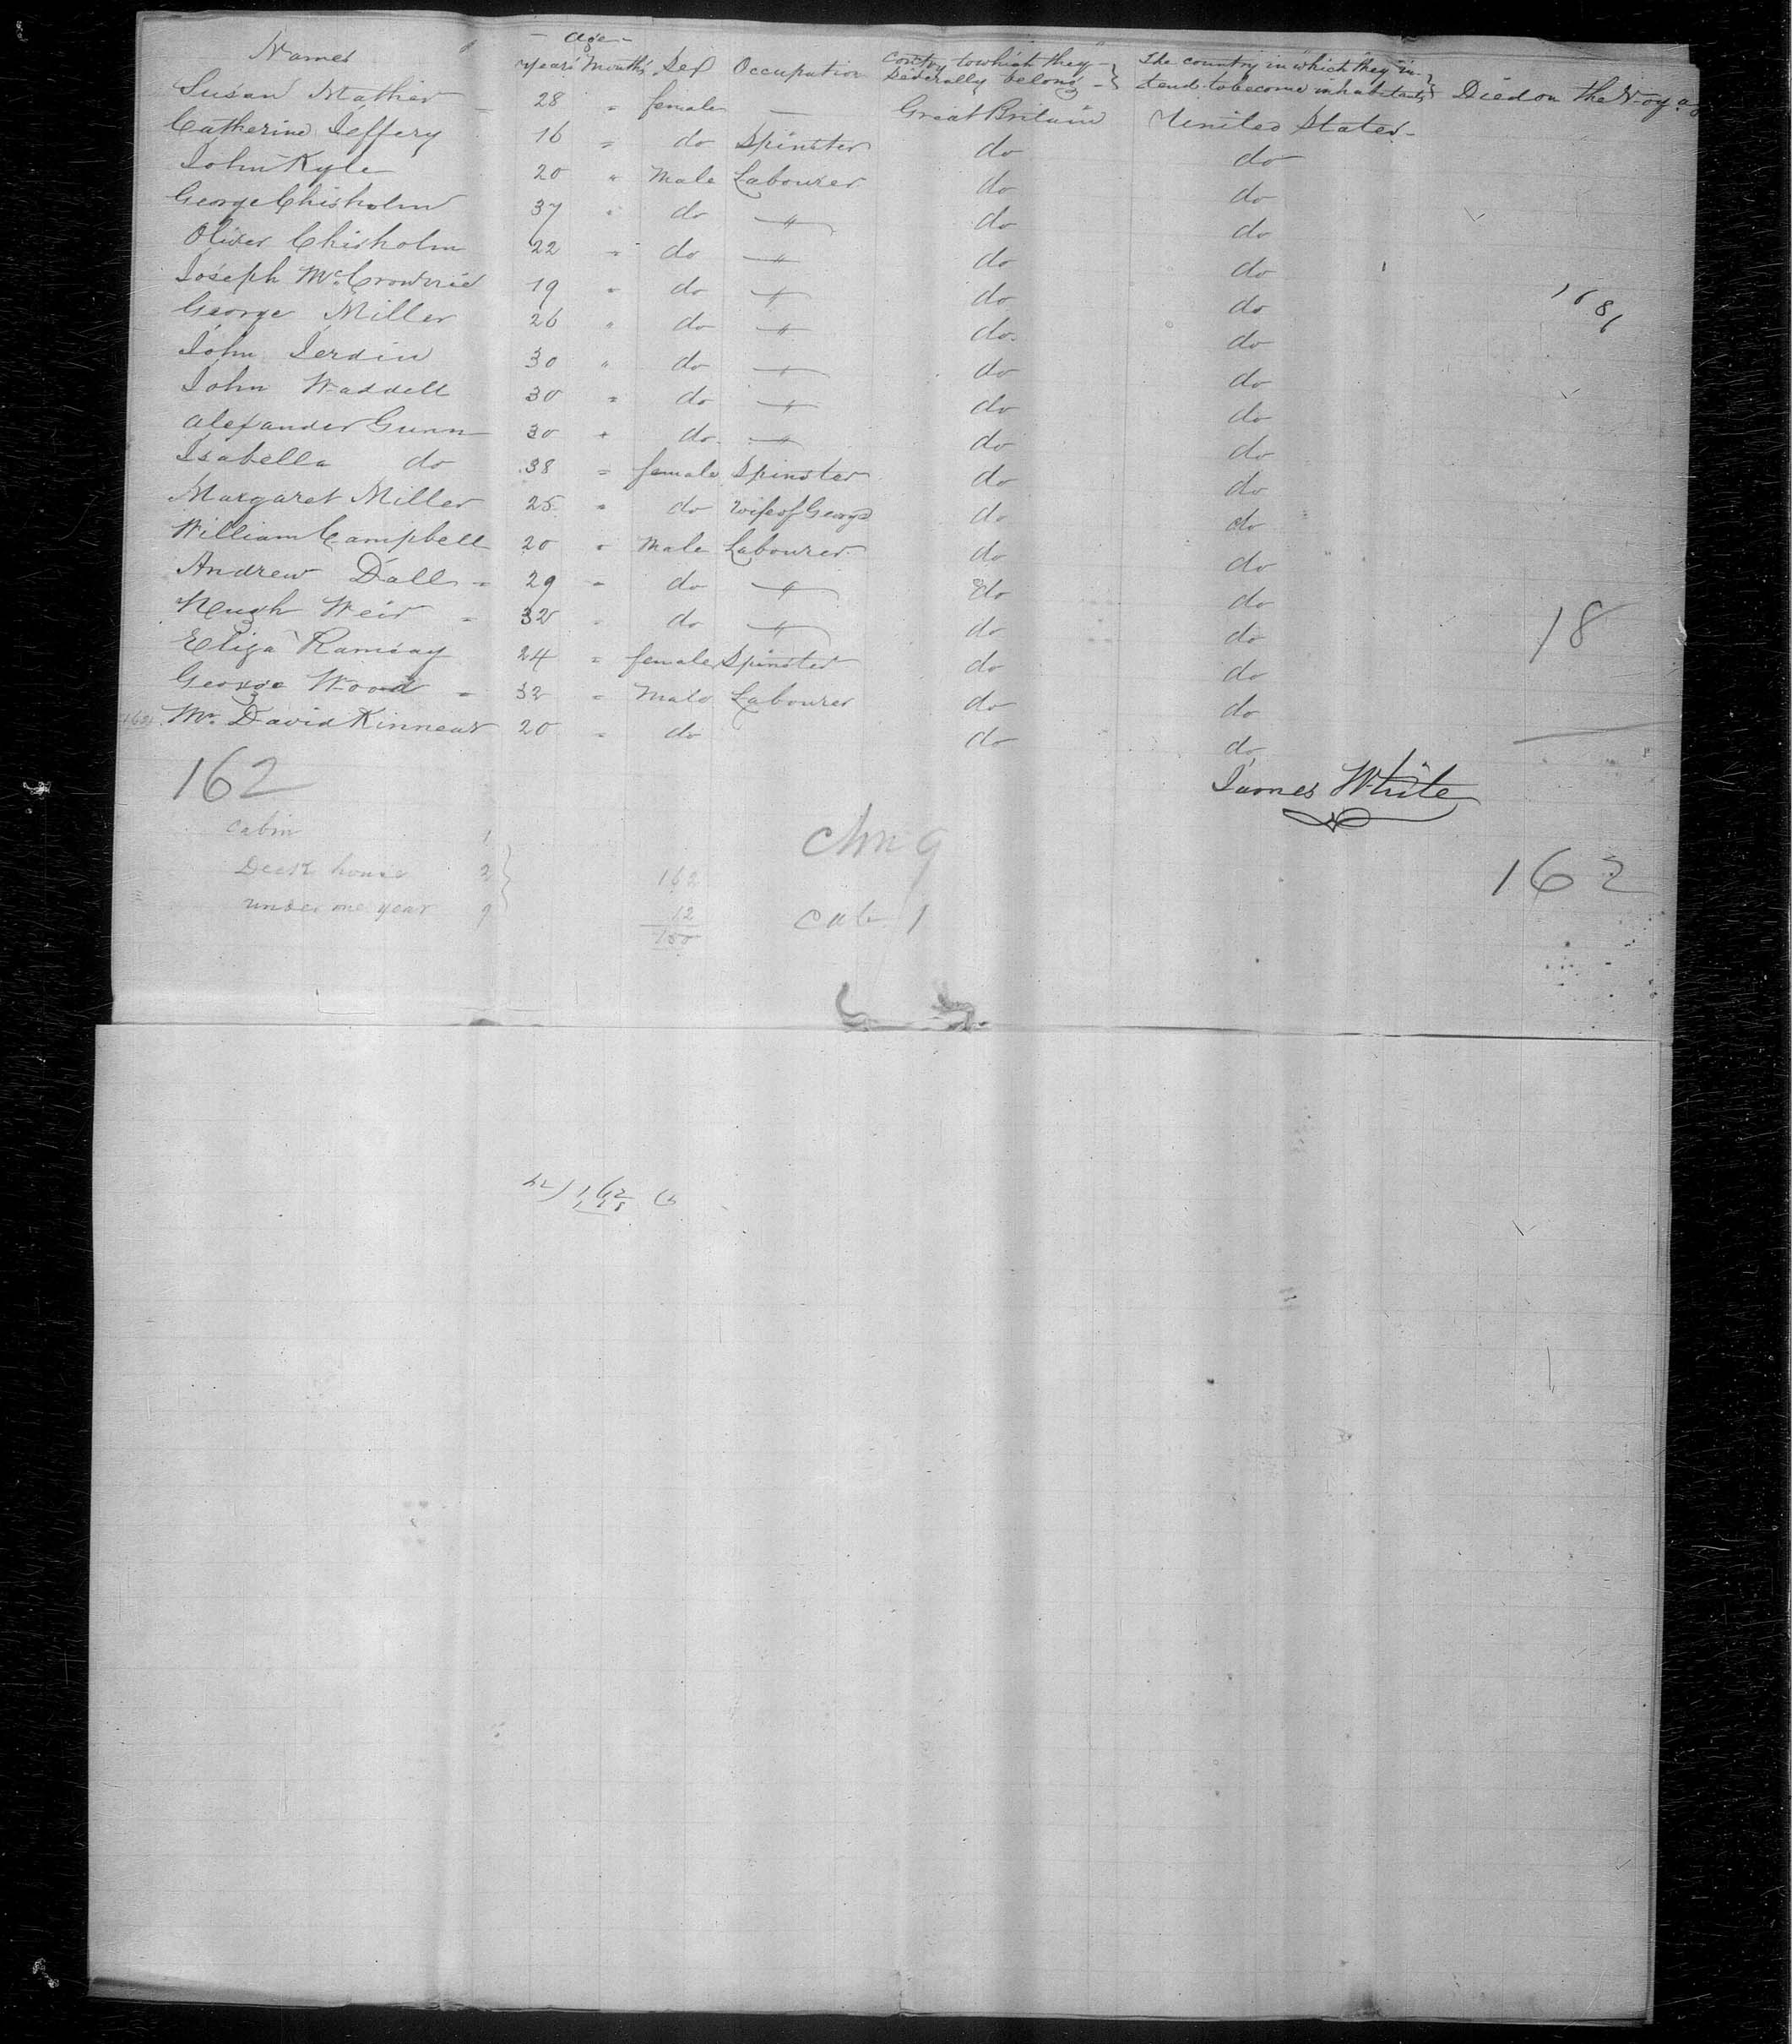 Names – age – Years Months Sex Occupation Contry to which they severally belong – The country in which they intend to become inhabitants Died on the Voyag
Susan Mather 28 " female — Great Britain United States –
Catherine Jeffery 16 " do Spinster do do
John Kyle 20 " Male Labourer do do
George Chisholm 37 " do " do do
Oliver Chisholm 22 " do " do do
Joseph Mc 19 " do " do do
George Miller 26 " do " do. do
John Jerdin 30 " do " do do
John Waddell 30 " do " do do
Alexander Gunn 30 " do. " do do
Isabella do 38 " female Spinster do do
Margaret Miller 25 " do wife of George do do
William Campbell 20 " Male Labourer do do
Andrew Dall 29 " do " do do
Hugh Weir 32 " do " do do
Eliza Ramsay 24 " female Spinster do do
George Wood 32 " Male Labourer do do
Mr. David Kinnear 20 " do do do
18
162
James White
Cabin 1
Deck house 2
under one year 9
162
12
150
Chn 9
Cab 1
162